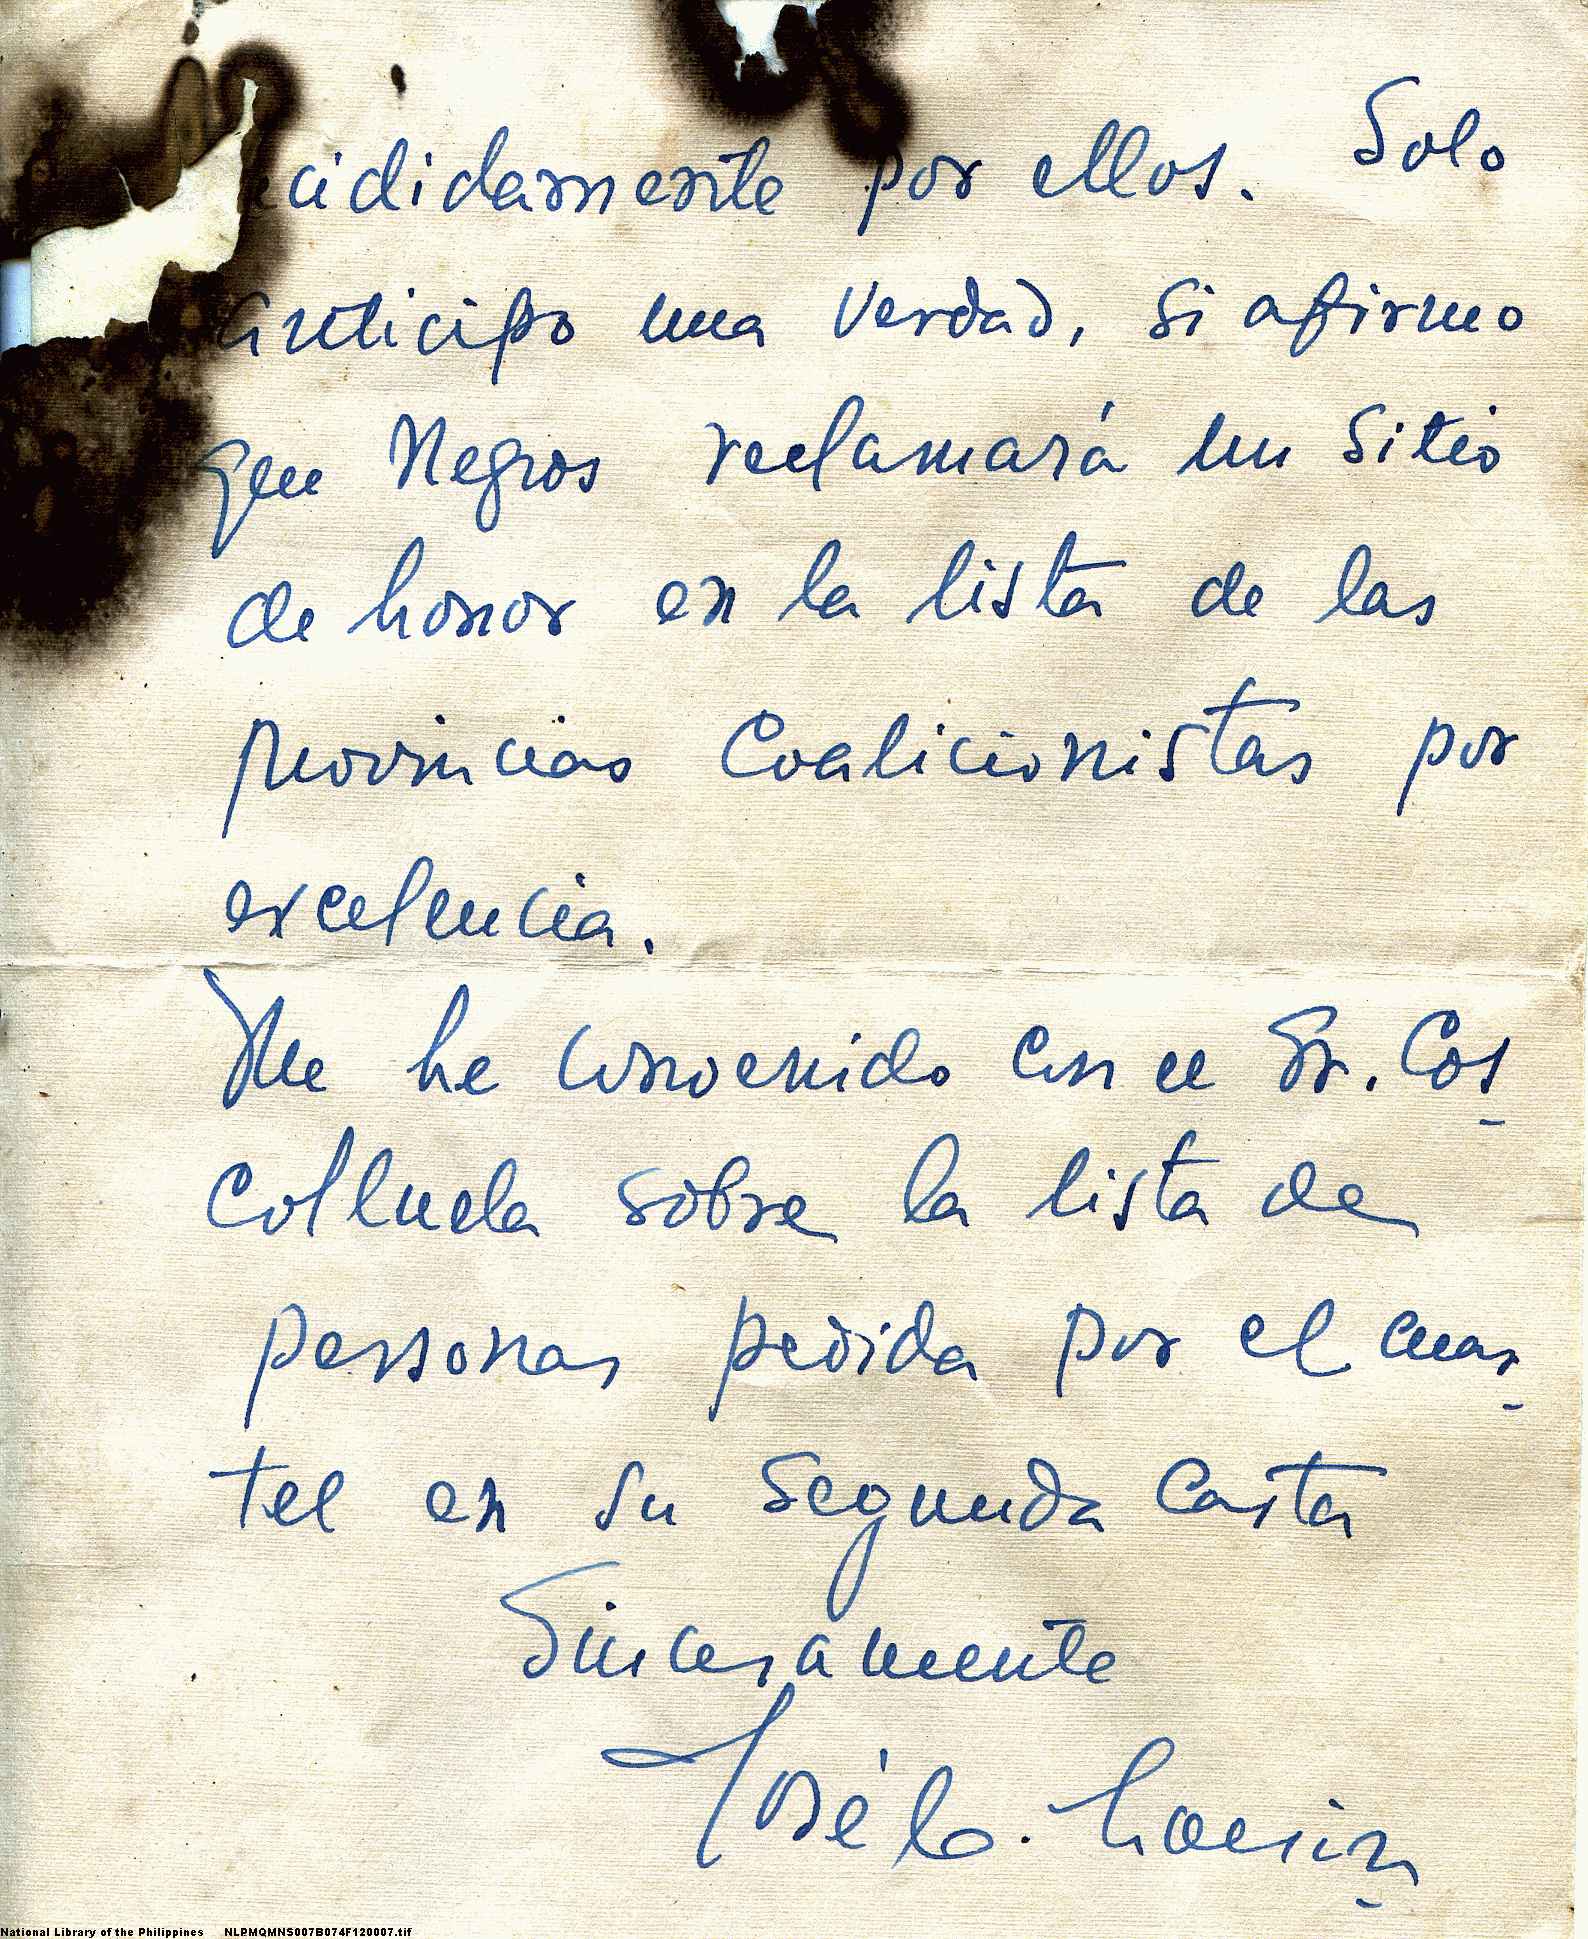 cididamente por ellos. Solo
anticipo una verdad, si afirmo
que Negros reclamará un sitio
de honor en la lista de las
provincias Coalicionistas por
excelencia.
Me he convenido con el Sr. Cos-
colluela sobre la lista de
personas pedida por el cuar-
tel en su segunda carta
Sinceramente
José C. Locsin
National Library of the Philippines NLPMQMNS007B074F120007.tif